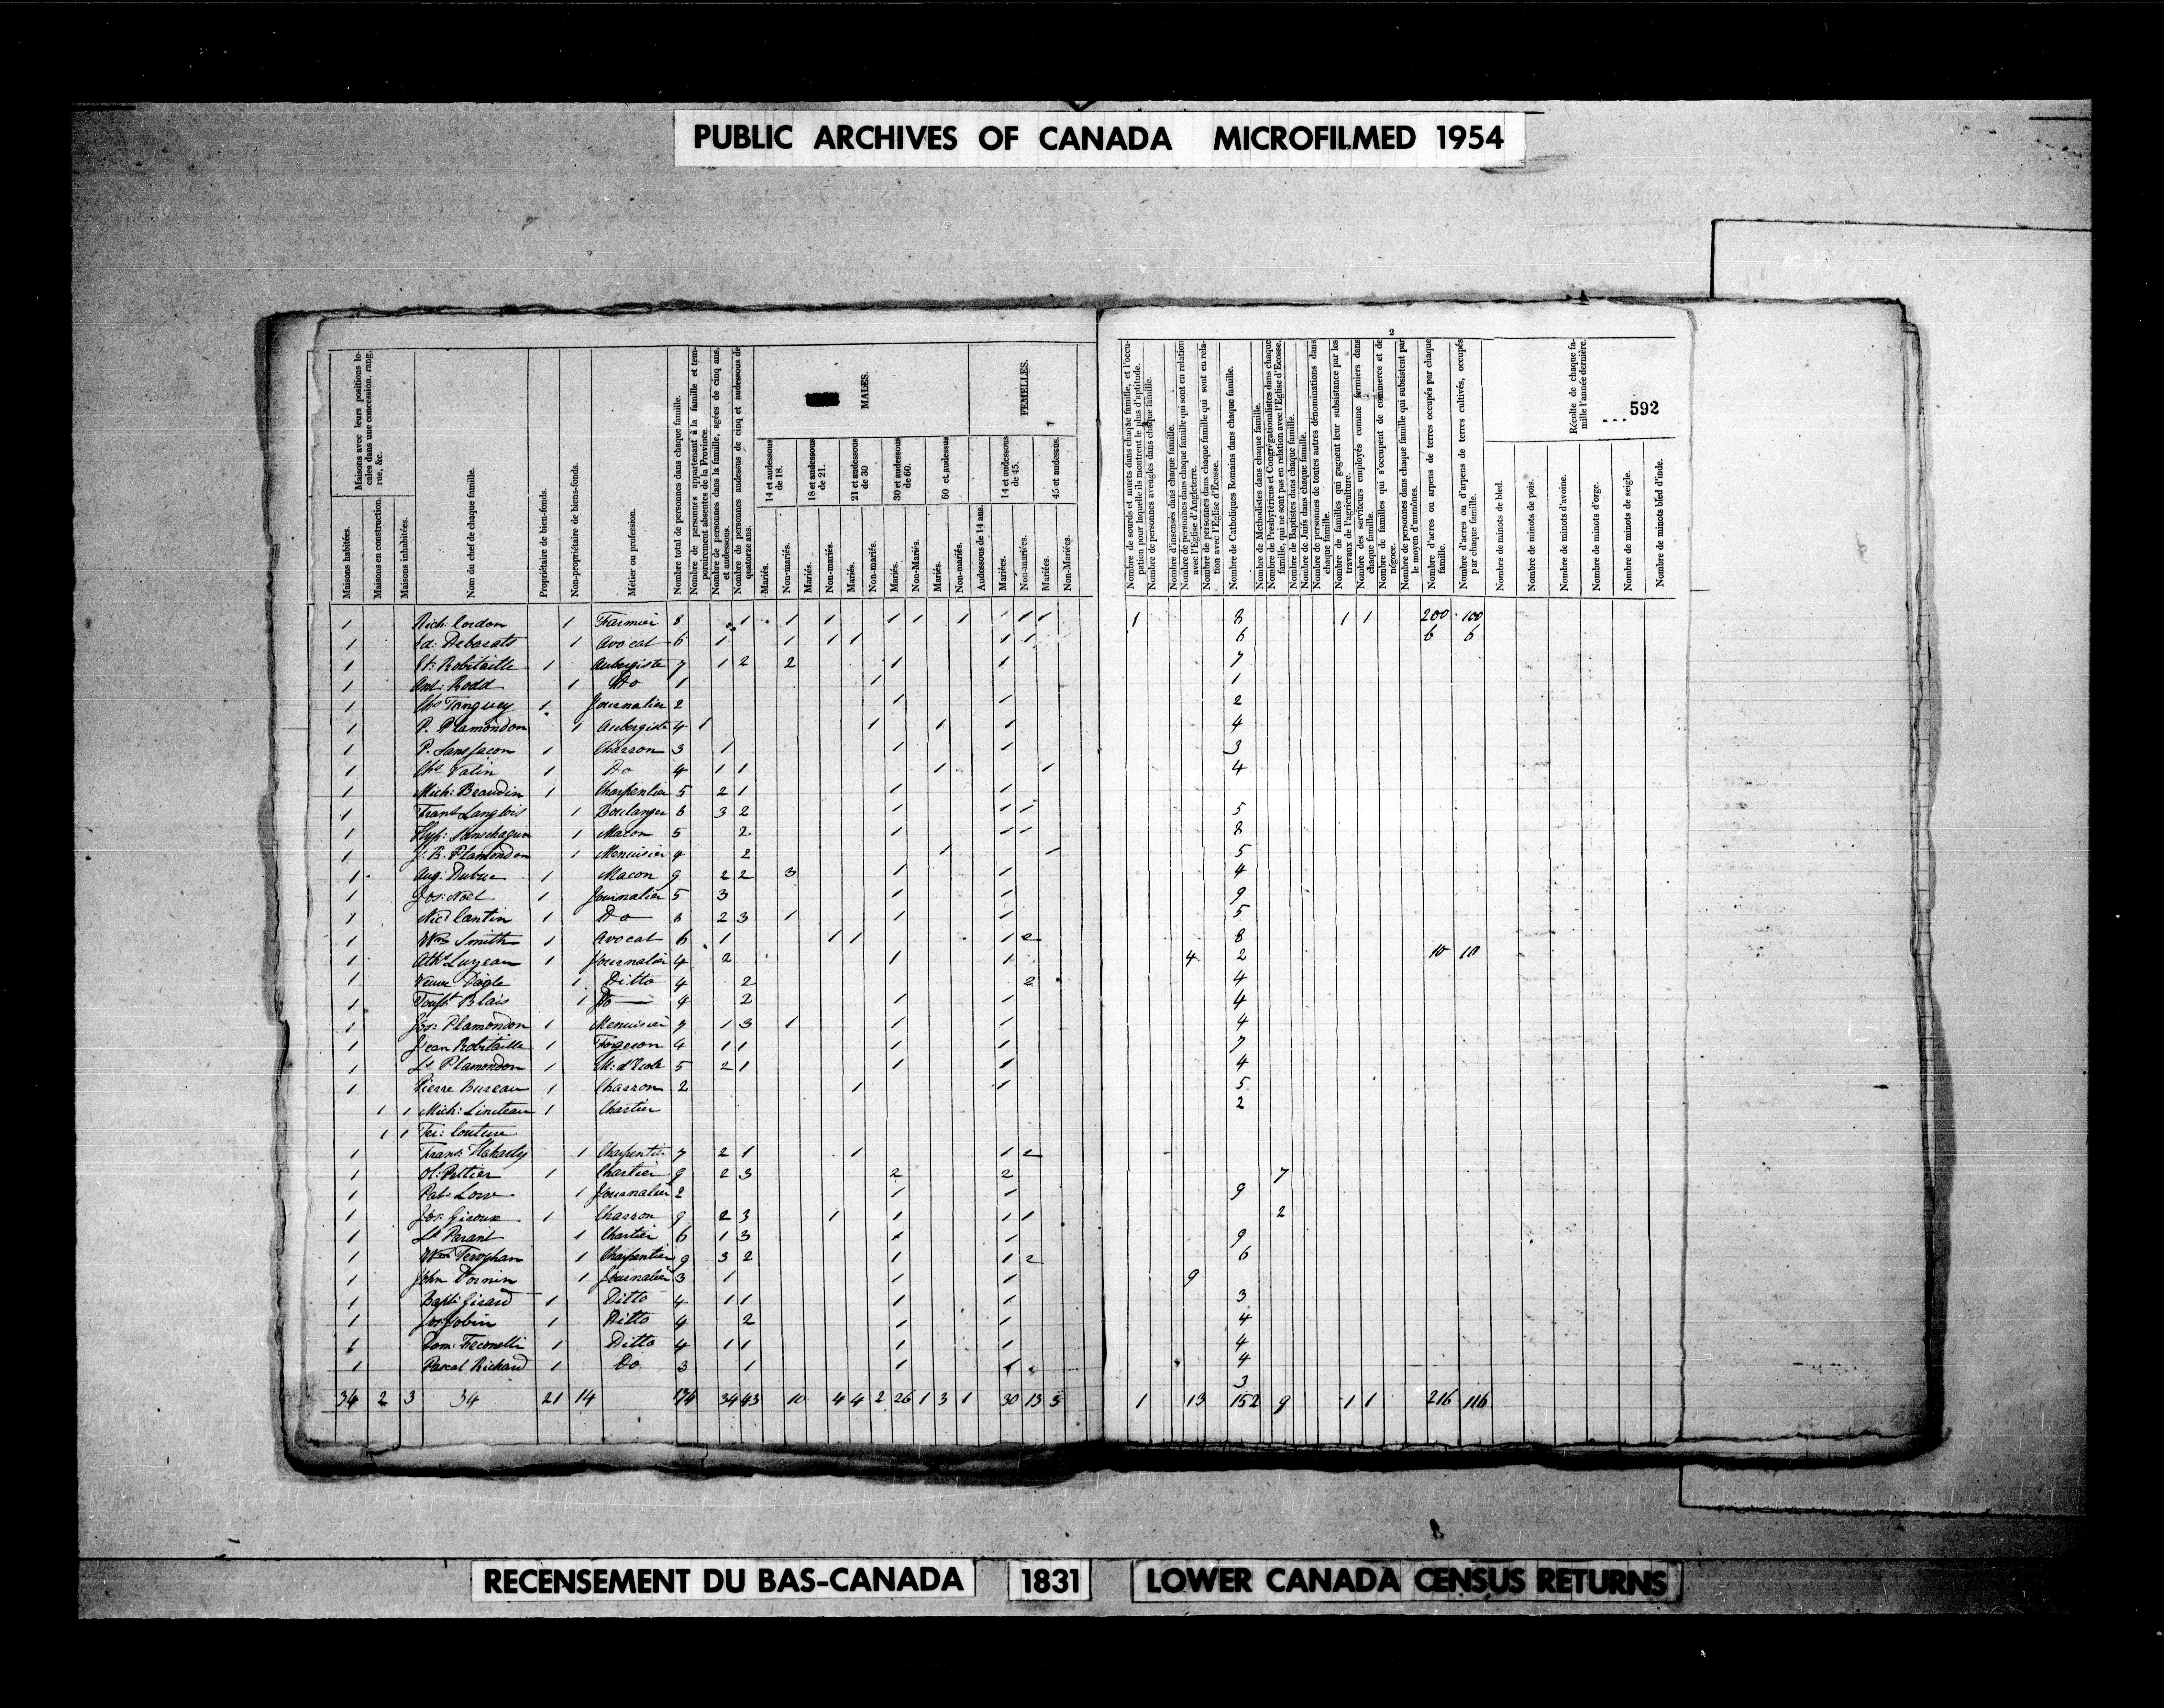 PUBLIC ARCHIVES OF CANADA MICROFILMED 1954
2
592
Maisons avec leurs positions locales dans une concession, rang, rue, &c.
Maisons habitées.
Maisons en construction.
Maisons inhabitées.
Nom du chef de chaque famille.
Propriétaire de bien-fonds.
Non-propriétaire de biens-fonds.
Métier ou profession.
Nombre total de personnes dans chaque famille.
Nombre de personnes appartenant à la famille et temporairement absentes de la Province.
Nombre de personnes dans la famille, agées de cinq ans, et audessous.
Nombre de personnes audessus de cinq et audessous de quatorze ans.
MALES.
14 et audessous de 18.
18 et audessous de 21.
21 et audessous de 30
30 et audessous de 60.
60 et audessus
Mariés.
Non-mariés.
Mariés.
Non-mariés.
Mariés.
Non-mariés.
Mariés.
Non-Mariés.
Mariés.
Non-mariés.
FEMELLES.
Audessous de 14 ans.
14 et audessous de 45.
45 et audessus.
Mariées.
Non-mariées.
Mariées.
Non-Mariées.
Nombre de sourds et muets dans chaque famille, et l'occupation pour laquelle ils montrent le plus d'aptitude.
Nombre de personnes aveugles dans chaque famille.
Nombre d'insensés dans chaque famille.
Nombre de personnes dans chaque famille qui sont en relation avec l'Eglise d'Angleterre.
Nombre de personnes dans chaque famille qui sont en relation avec l'Eglise d'Ecosse.
Nombre de Catholiques Romains dans chaque famille.
Nombre de Methodistes dans chaque famille.
Nombre de Presbytériens et Congrégationalistes dans chaque famille, qui ne sont pas en relation avec l'Eglise d'Ecosse.
Nombre de Baptistes dans chaque famille.
Nombre de Juifs dans chaque famille.
Nombre de personnes de toutes autres dénominations dans chaque famille.
Nombre de familles qui gagnent leur subsistance par les travaux de l'agriculture.
Nombre des serviteurs employés comme fermiers dans chaque famille.
Nombre de familles qui s'occupent de commerce et de négoce.
Nombre de personnes dans chaque famille qui subsistent par le moyen d'aumônes.
Nombre d'acres ou arpens de terres occupés par chaque famille.
Nombre d'acres ou d'arpens de terres cultivés, occupés par chaque famille.
Récolte de chaque famille l'année dernière.
Nombre de minots de bled.
Nombre de minots de pois.
Nombre de minots d'avoine.
Nombre de minots d'orge.
Nombre de minots de seigle.
Nombre de minots bled d'inde.
1 Rich: Cordon 1 Farmier 8 1 1 1 1 1 1 1 1 1 8 1 1 200 100
1 Ed: Debarats 1 Avocat 6 1 1 1 1 1 1 6 6 6
1 Et: Robitaille 1 Aubergiste 7 1 2 2 1 1 7
1 Ant: Rodd 1 Do 1 1 1
1 Chs Tanguey 1 Journalier 2 1 1 2
1 P. Plamondon 1 Aubergiste 4 1 1 1 1 4
1 P. Sansfacon 1 Charron 3 1 1 1 3
1 Chs Valin 1 Do 4 1 1 1 1 4
1 Mich: Beaudin 1 Charpentier 5 2 1 1 1
1 Frans Langlois 1 Boulanger 6 3 2 1 1 1 5
1 1 Macon 5 2 1 1 1 8
1 J. B. Plamondon 1 Menuisier 4 2 1 1 5
1 Aug: Dubuc 1 Macon 9 2 2 3 1 1 4
1 Jos: Noel 1 Journalier 5 3 1 1 9
1 Nic: Cantin 1 Do 8 2 3 1 1 1 5
1 Wm Smith 1 Avocat 6 1 1 1 1 2 8
1 1 Journalier 4 2 1 1 4 2 10 10
1 Veuve Daigle 1 Ditto 4 2 2 4
1 Toust Blais 1 Do 4 2 1 1 4
1 Jos: Plamondon 1 Menuisier 7 1 3 1 1 1 4
1 Jean Robitaille 1 Forgeron 4 1 1 1 1 7
1 Ls Plamondon 1 M: d'Ecole 5 2 1 1 1 4
1 Pierre Bureau 1 Charron 2 1 1 5
1 1 Mich: Lineteau 1 Chartier 2
1 1 Couture
1 Frans 1 Charpentier 7 2 1 1 1 2
1 Ol: Peltier 1 Chartier 9 2 3 2 2 7
1 Pat: Low 1 Journalier 2 1 1 9
1 Jos: Giroux 1 Charron 9 2 3 1 1 1 1 2
1 Ls Parant 1 Chartier 6 1 3 1 1 9
1 Wm 1 Charpentier 9 3 2 1 1 2 6
1 John 1 Journalier 3 1 1 1 9
1 Bapt: Girard 1 Ditto 4 1 1 1 1 3
1 Jos: Jobin 1 Ditto 4 2 1 1 4
1 Dom: 1 Ditto 4 1 1 1 1 4
1 Pascal Richard 1 Do 3 1 1 1 4
3
34 2 3 34 21 14 174 34 43 10 4 4 2 26 1 3 1 30 13 5 1 13 152 9 1 1 216 116
RECENSEMENT DU BAS-CANADA 1831 LOWER CANADA CENSUS RETURNS